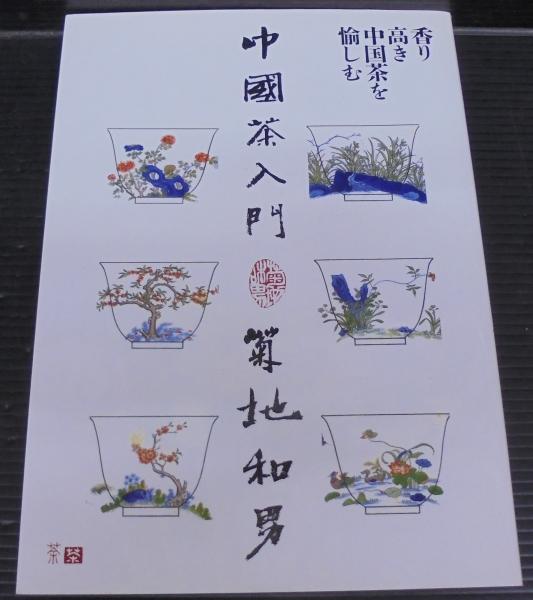 香り
高き
中国茶を
愉しむ
中國茶入門
菊地和男
茶
茶